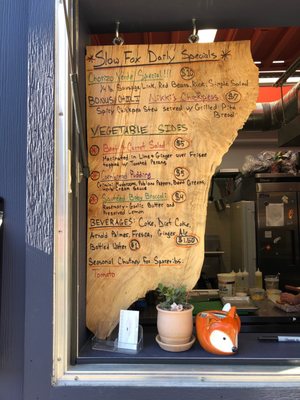 * Slow Fox Daily Specials *
Chorizo Verde Special!!! $10
1/4 lb. Sausage Link, Red Beans, Rice, Simple Salad
BONUS CHILI Nikki's Chickpeas $7
Spicy Chickpea Stew served w/ Grilled Pita
Bread
VEGETABLE SIDES
Beet & Carrot Salad $5
Marinated in Lime & Ginger over Frisee
topped w/ Toasted
Cornbread Pudding $5
Mushroom, Poblano Peppers, Beet Greens,
Cream Sauce
Sautéed Baby Broccoli $4
Rosemary-Garlic Butter and
Preserved Lemon
BEVERAGES: Coke, Diet Coke,
Arnold Palmer, Fresca, Ginger Ale
$1.50
Bottled Water $1
Seasonal Chutney for Spareribs:
Tomato